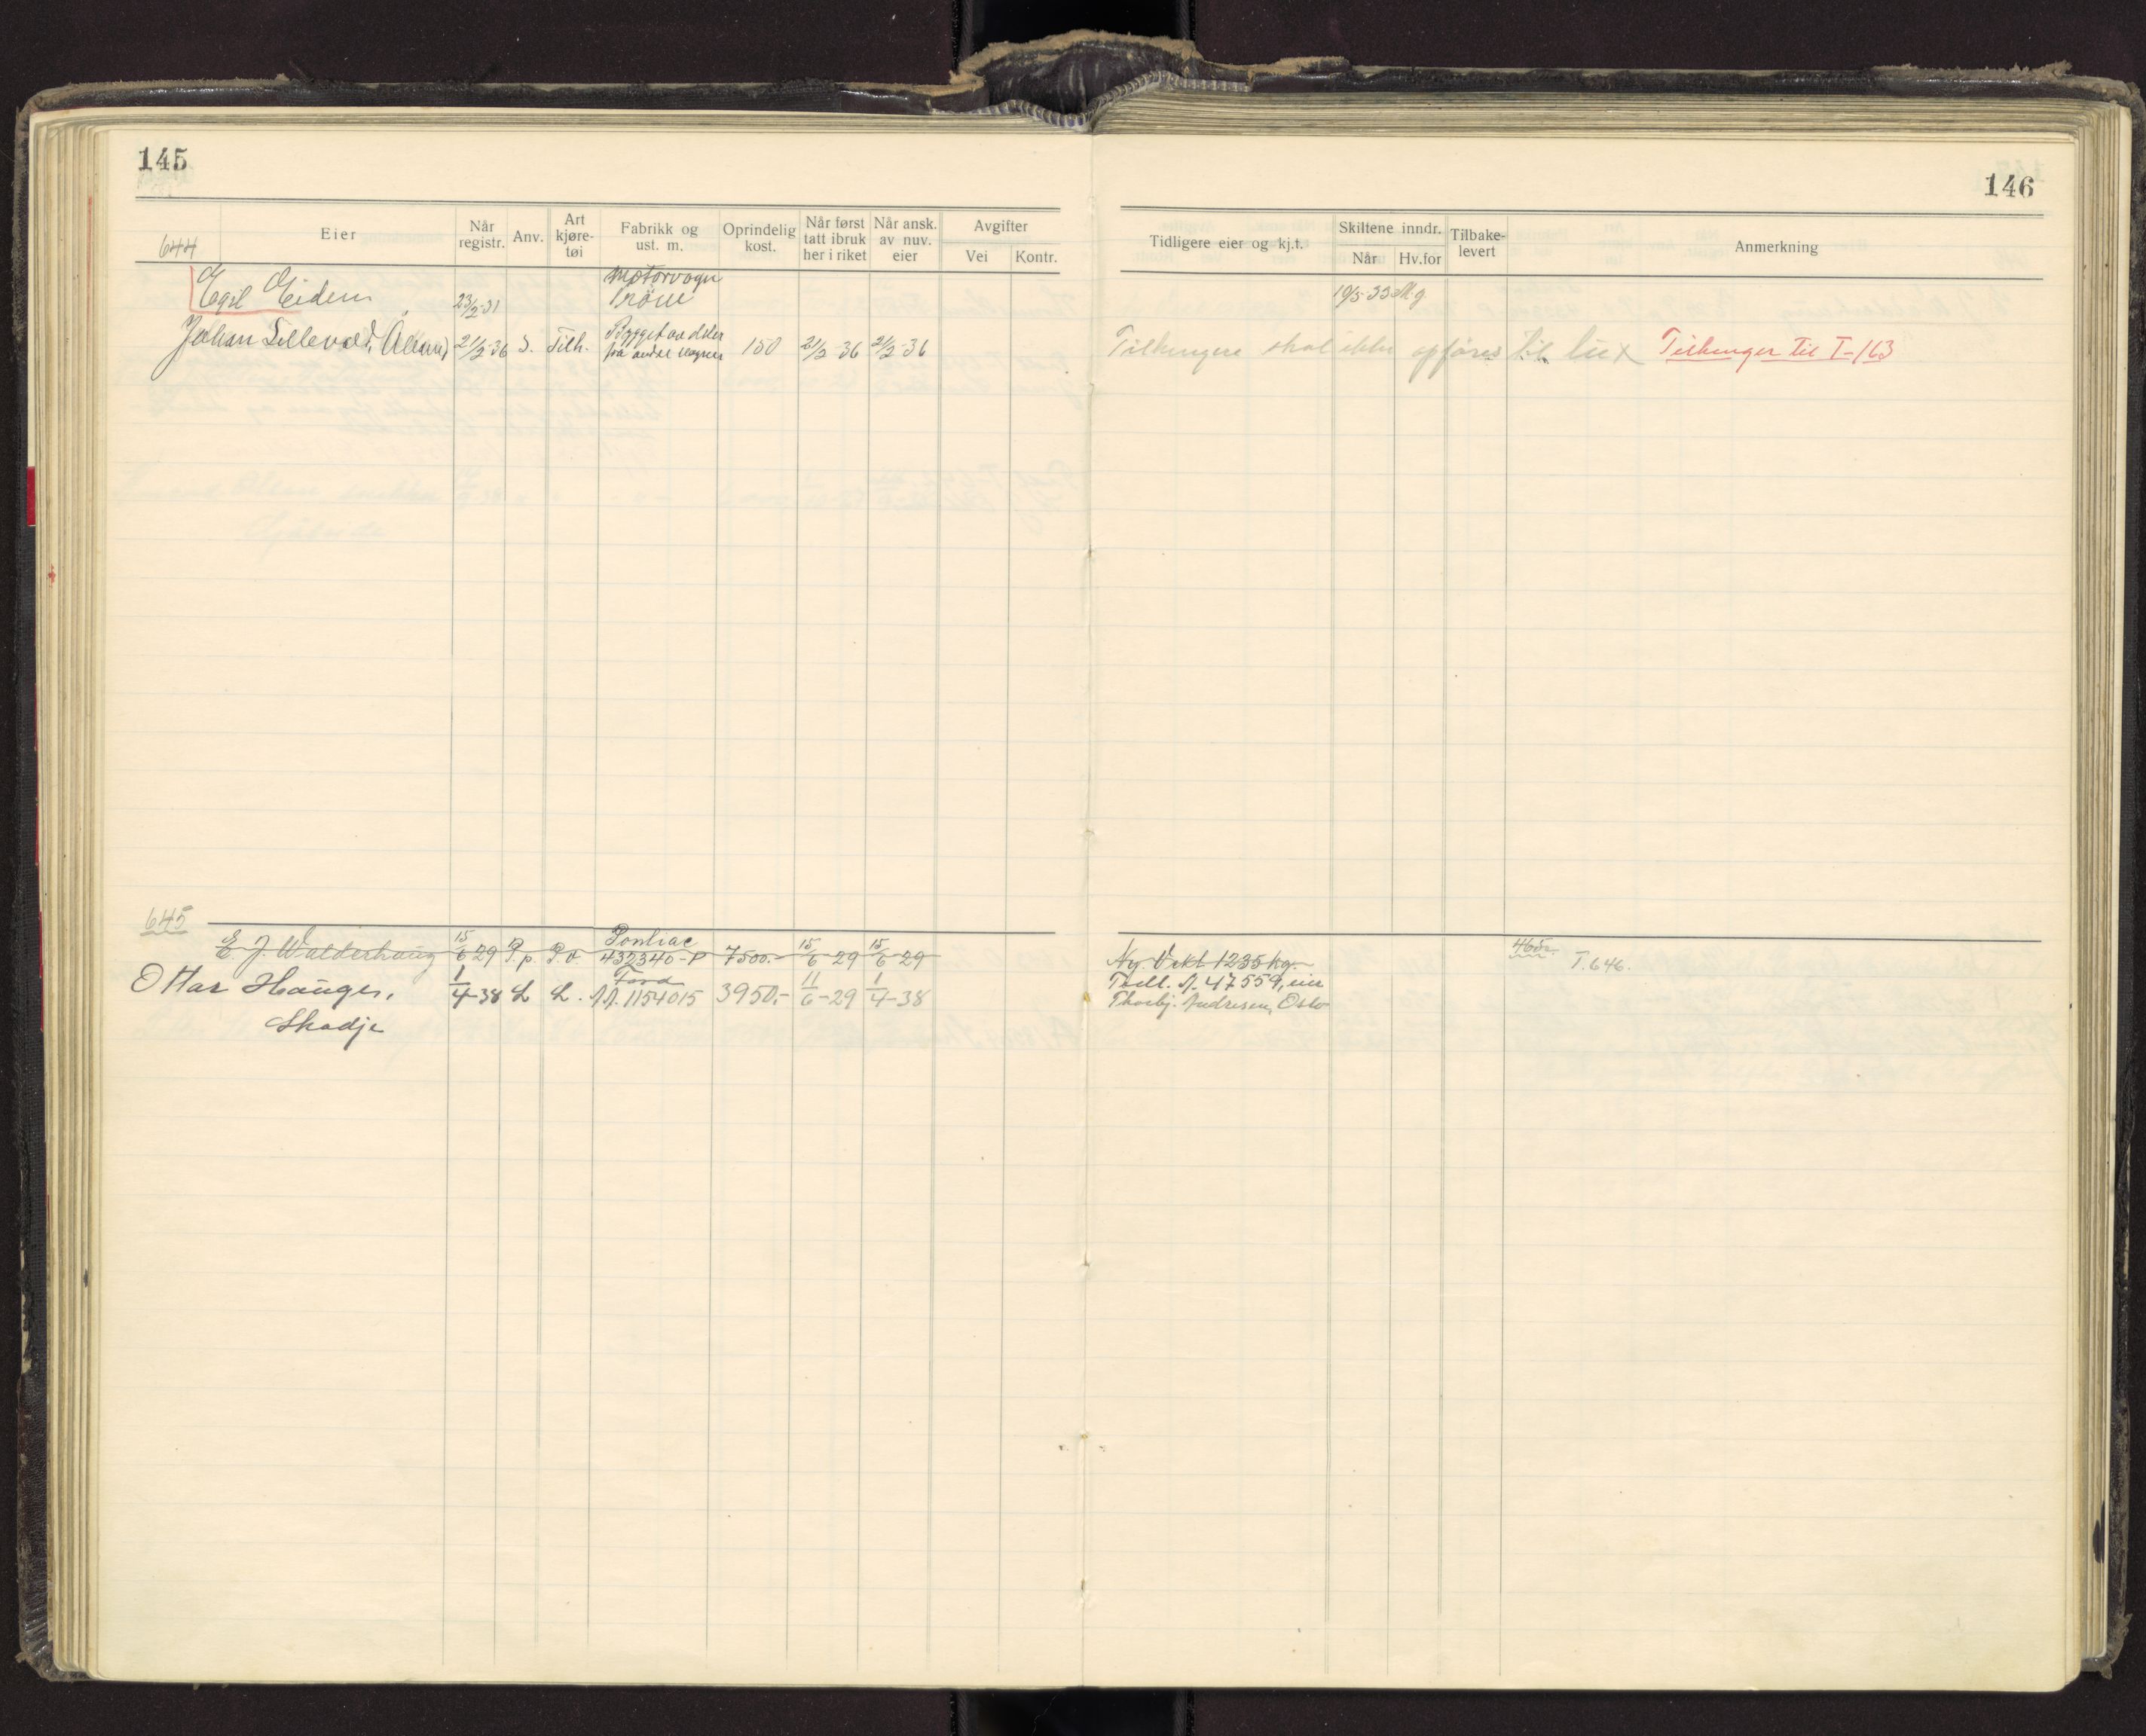 145
146
Eier
Når registr.
Anv.
Art kjøre-tøi
Fabrikk og ust. m.
Oprindelig kost.
Når først tatt ibruk her i riket
Når ansk. av nuv. eier
Avgifter
Vei
Kontr.
Tidligere eier og kj.t.
Skiltene inndr.
Når
Hv.for
Tilbake-levert
Anmerkning
644
Motorvogn
Egil Eidem 23/2-31 19/5-33
Bygget av deler
Johan Lillevold, 21/2-36 S. Tilh. fra andre vogner 150 21/2-36 21/2-36 Tilhengere skal ikke opføres Tilhenger til T-163
645
Pontiac
E. J. Walderhaug 15/6 29 P.p. P.v 432340-P 7500.- 15/6-29 15/6-29 Ny. Vekt 1235 kg. 465 T.646.
Ford
Ottar Hauger, 1/4-38 L L. AA.1154015 3950,- 11/6-29 1/4-38 Tidl. A. 47559, eier
Skodje Thorbj. Andresen, Oslo